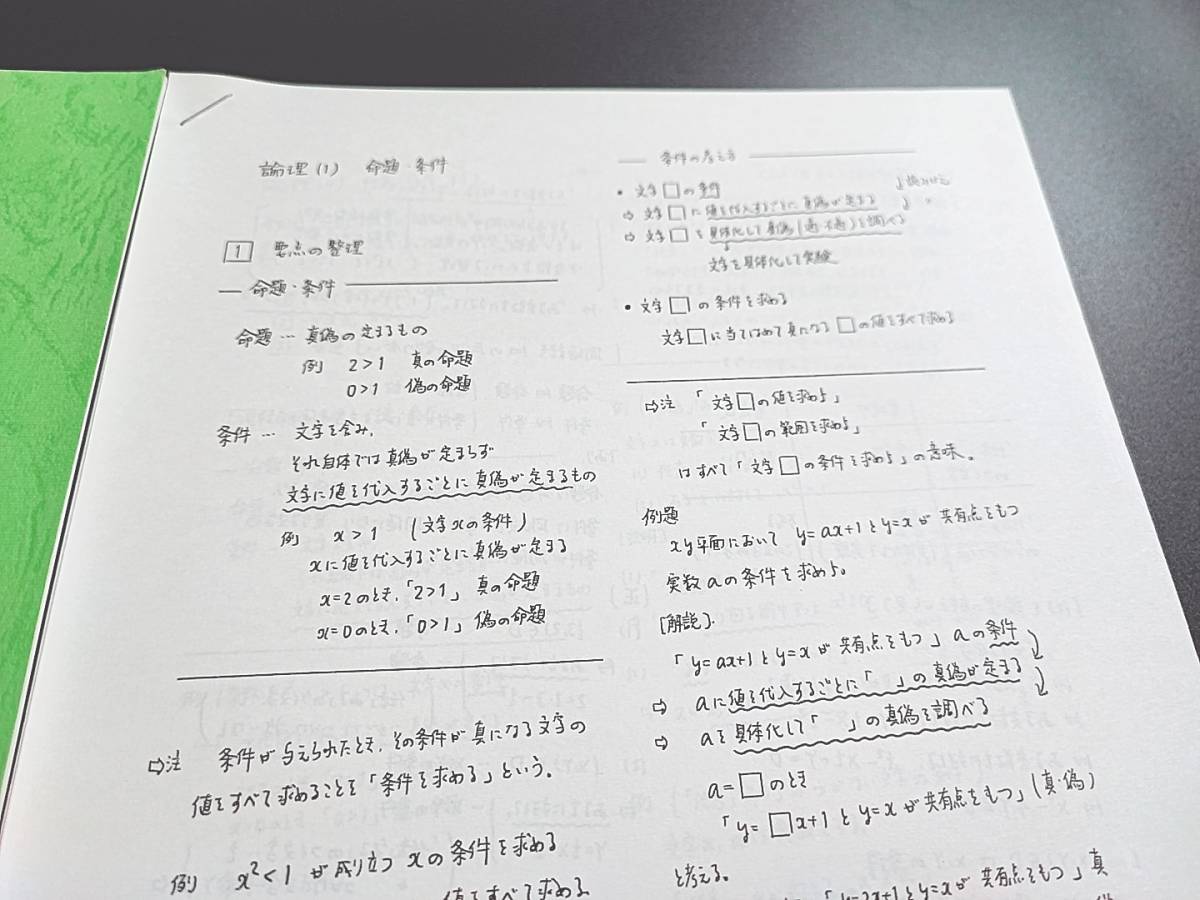 論理(1) 命題・条件
1 要点の整理
命題・条件
命題 … 真偽の定まるもの
例 2>1 真の命題
0>1 偽の命題
条件 … 文字を含み、
それ自体では真偽が定まらず
文字に値を代入するごとに真偽が定まるもの
例 x>1 (文字xの条件)
xに値を代入するごとに真偽が定まる
x=2のとき、「2>1」 真の命題
x=0のとき、「0>1」 偽の命題
⇨注 条件が与えられたとき、その条件が真になる文字の
値をすべて求めることを「条件を求める」という。
例 x²<1 が成り立つ xの条件を求める
値をすべて求める。
条件の考え方
• 文字□の条件
⇨ 文字□に値を代入するごとに真偽が定まる
⇨ 文字□を具体化して真偽(適・不適)を調べる
文字を具体化して実験
• 文字□の条件を求める
文字□に当てはめて真になる□の値をすべて求める
⇨注 「文字□の値を求めよ」
「文字□の範囲を求めよ」
はすべて「文字□の条件を求めよ」の意味。
例題
xy平面において y=ax+1とy=xが共有点をもつ
実数aの条件を求めよ。
[解説].
「y=ax+1とy=xが共有点をもつ」aの条件
⇨ aに値を代入するごとに「 」の真偽が定まる
⇨ aを具体化して「 」の真偽を調べる
a=□のとき
「y=□x+1とy=xが共有点をもつ」(真・偽)
と考える。
「y=2x+1とy=xが共有点をもつ」真